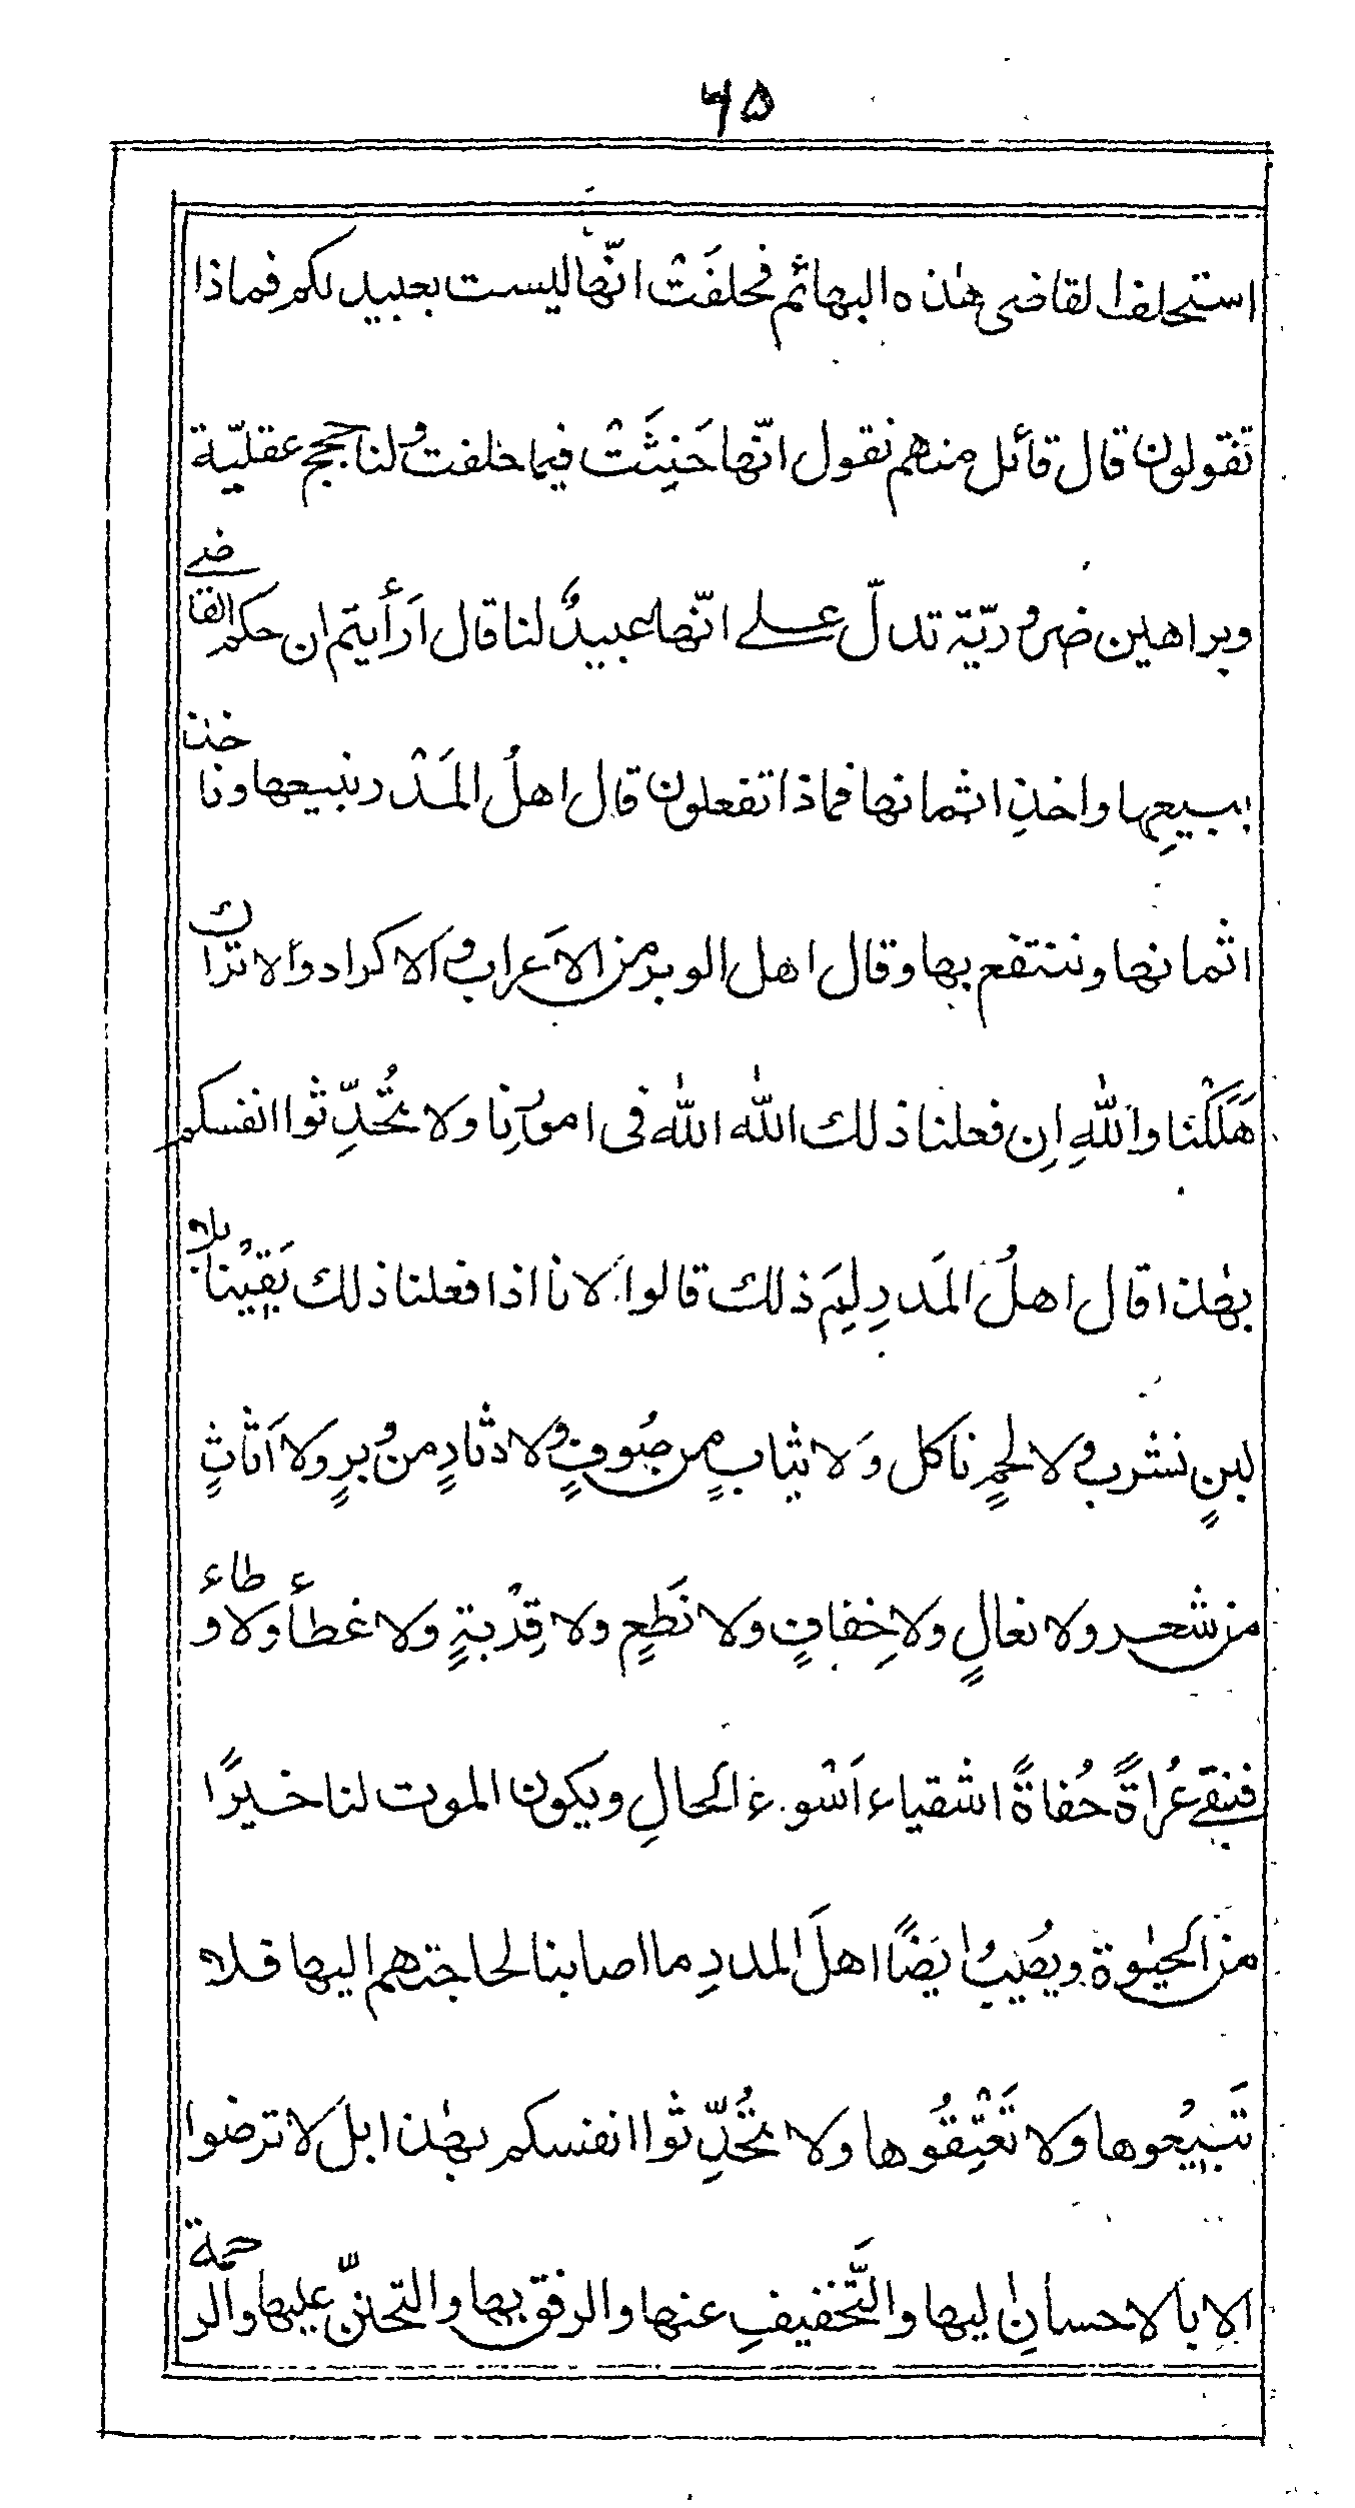 ٦٥
استحلف القاضى هٰذه البهائم فحلفَتْ انّها ليست بعبيد لكم فماذا
تقولون قال قائل منهم نقول انّها حَنِثَتْ فيما حلفت ولنا حجج عقليّة
وبراهين ضروريّة تدلّ على انّها عبيدٌ لنا قال اَرَأَيتم ان حكم القاضے
ببيعِها واخذِ اثمانها فماذا تفعلون قال اهلُ المَدَر نبيعها وناخذ
اثمانها وننتفع بها وقال اهل الوبر من الاَعراب والاكراد والاتراك
هَلَكْنَا واللهِ اِن فعلنا ذلك الله الله فى امورِنا ولا تُحَدِّثوا انفسكم
بهٰذا قال اهلُ المَدرِ لِمَ ذلك قالوا لانا اذا فعلنا ذلك بَقِيْنا بلا
لبنٍ نشرب ولا لحمٍ ناكل وَلا ثيابٍ من صُوفٍ ولا دثارٍ من وبرٍ ولا اَثاثٍ
من شعر ولا نعالٍ ولا خِفافٍ ولا نَطعٍ ولا قِرْبةٍ ولا غطاءٍ ولا وطاء
فنبقے عُراةً حُفاةً اشقياء اَسْوء الحالِ ويكون الموت لنا خيرًا
من الحيٰوة ويصيبُ ايضًا اهلَ المدرِ ما اصابنا لحاجتهم اليها فلا
تَبيعُوها ولا تَعْتِقُوها ولا تُحَدِّثوا انفسكم بهٰذا بل لا ترضوا
الا بالاحسانِ اليها والتَّخفيفِ عنها والرفق بها والتحنّن عليها والرحمة